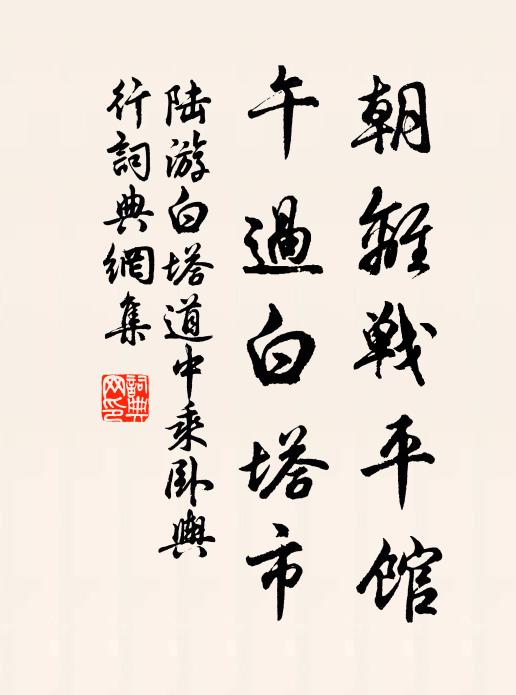 朝離戰平館
午過白塔市
陸游白塔道中乘卧輿
行詞典網集
詞典